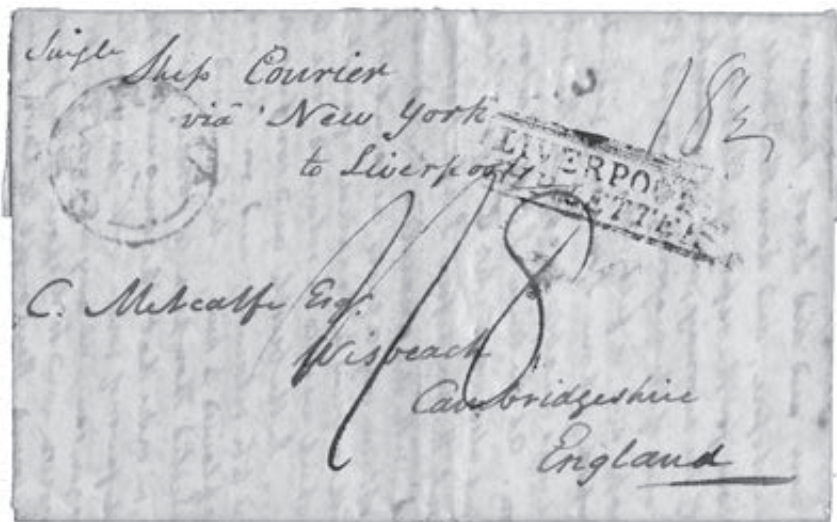 Single
Ship Courier
via New York
to Liverpool
18½
LIVERPOOL
SHIP LETTER
1/8
C. Metcalfe Esqr.
Wisbeach
Cambridgeshire
England